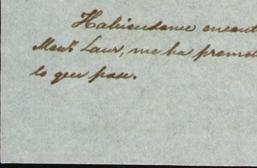 Habiendome encont
Mont. Laur, me ha promet
lo que pase.